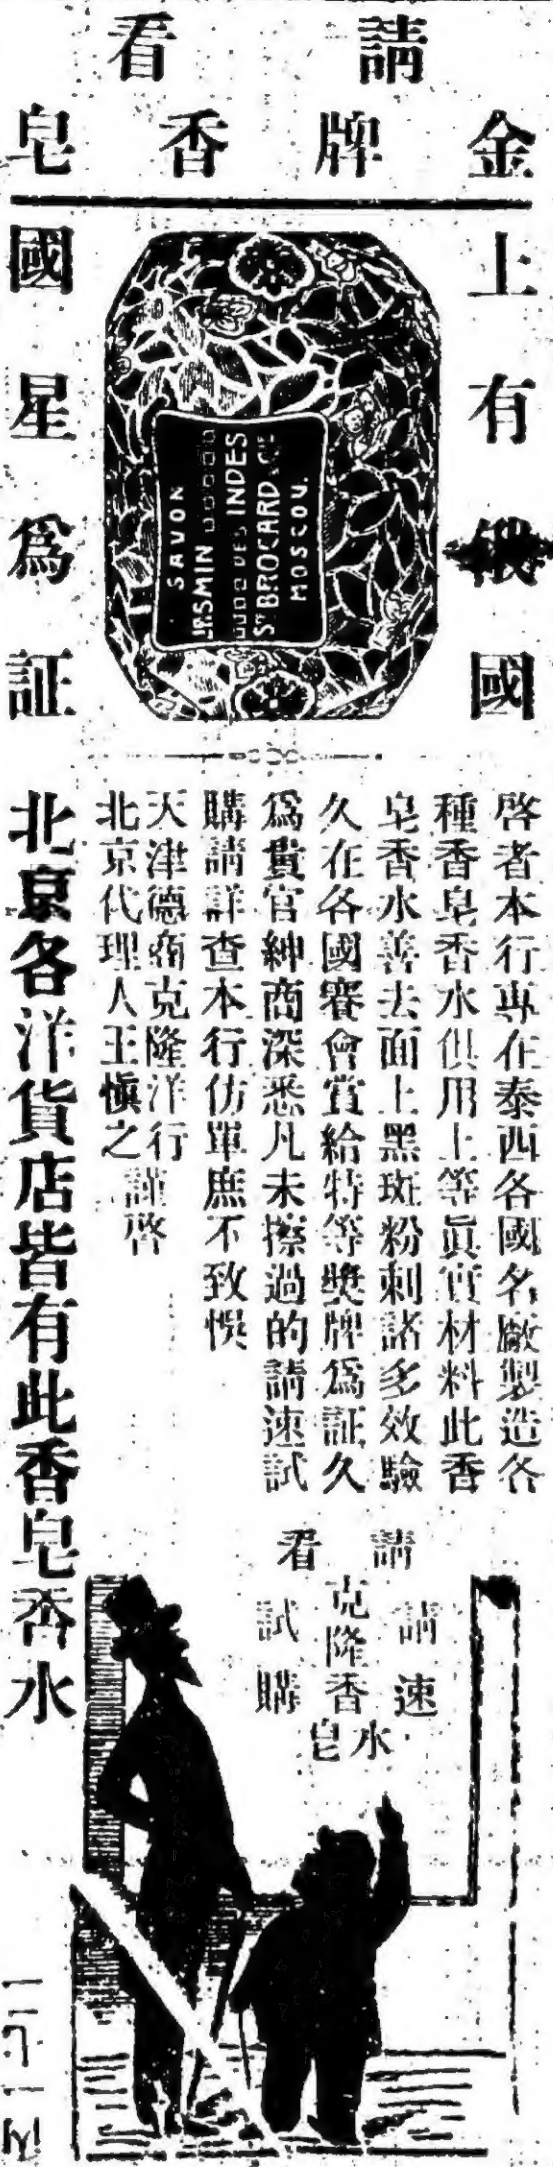 請看
金牌香皂
上有俄國
國星爲証
SAVON
JASMIN
DES INDES
ST BROCARD & CIE
MOSCOU.
啓者本行專在泰西各國名廠製造各
種香皂香水俱用上等眞實材料此香
皂香水善去面上黑斑粉刺諸多效驗
久在各國賽會賞給特等獎牌爲証久
爲貴官紳商深悉凡未擦過的請速試
購請詳查本行仿單庶不致悞
天津德商克隆洋行
北京代理人王愼之
謹啓
北京各洋貨店皆有此香皂香水
請看
請速
克隆香水皂
試購